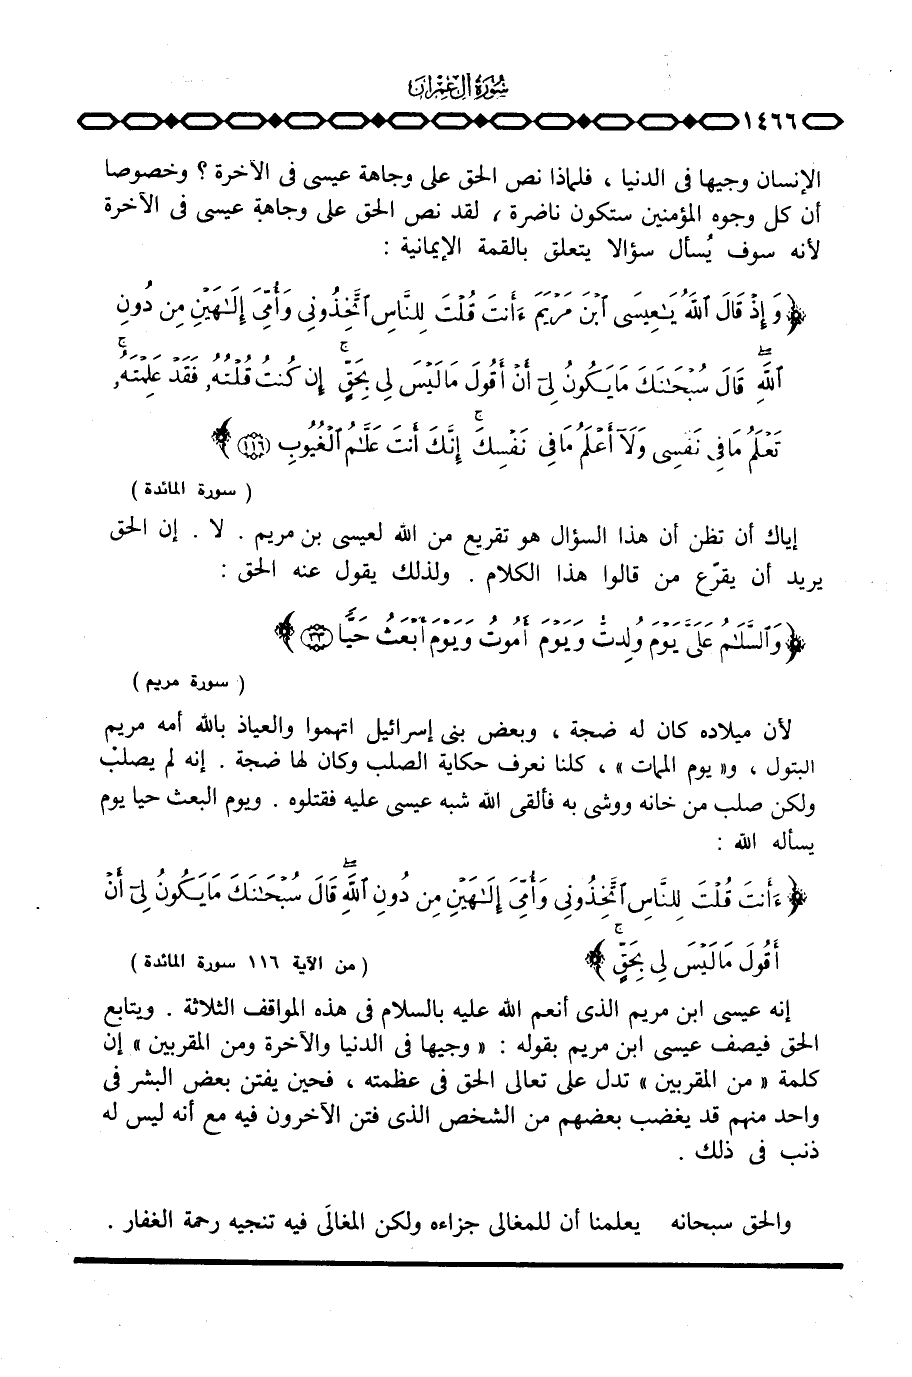 سورة آل عمران
١٤٦٦
الإنسان وجيها فى الدنيا ، فلماذا نص الحق على وجاهة عيسى فى الآخرة ؟ وخصوصا
أن كل وجوه المؤمنين ستكون ناضرة ، لقد نص الحق على وجاهة عيسى فى الآخرة
لأنه سوف يُسأل سؤالا يتعلق بالقمة الإيمانية :
﴿ وَإِذْ قَالَ ٱللَّهُ يَٰعِيسَى ٱبْنَ مَرْيَمَ ءَأَنتَ قُلْتَ لِلنَّاسِ ٱتَّخِذُونِى وَأُمِّىَ إِلَٰهَيْنِ مِن دُونِ
ٱللَّهِ ۖ قَالَ سُبْحَٰنَكَ مَا يَكُونُ لِىٓ أَنْ أَقُولَ مَا لَيْسَ لِى بِحَقٍّ ۚ إِن كُنتُ قُلْتُهُۥ فَقَدْ عَلِمْتَهُۥ ۚ
تَعْلَمُ مَا فِى نَفْسِى وَلَآ أَعْلَمُ مَا فِى نَفْسِكَ ۚ إِنَّكَ أَنتَ عَلَّٰمُ ٱلْغُيُوبِ (١١٦) ﴾
( سورة المائدة )
إياك أن تظن أن هذا السؤال هو تقريع من الله لعيسى بن مريم . لا . إن الحق
يريد أن يقرّع من قالوا هذا الكلام . ولذلك يقول عنه الحق :
﴿ وَٱلسَّلَٰمُ عَلَىَّ يَوْمَ وُلِدتُّ وَيَوْمَ أَمُوتُ وَيَوْمَ أُبْعَثُ حَيًّا (٣٣) ﴾
( سورة مريم )
لأن ميلاده كان له ضجة ، وبعض بنى إسرائيل اتهموا والعياذ بالله أمه مريم
البتول ، و« يوم الممات » ، كلنا نعرف حكاية الصلب وكان لها ضجة . إنه لم يصلب
ولكن صلب من خانه ووشى به فألقى الله شبه عيسى عليه فقتلوه . ويوم البعث حيا يوم
يسأله الله :
﴿ ءَأَنتَ قُلْتَ لِلنَّاسِ ٱتَّخِذُونِى وَأُمِّىَ إِلَٰهَيْنِ مِن دُونِ ٱللَّهِ ۖ قَالَ سُبْحَٰنَكَ مَا يَكُونُ لِىٓ أَنْ
أَقُولَ مَا لَيْسَ لِى بِحَقٍّ ۚ ﴾ ( من الآية ١١٦ سورة المائدة )
إنه عيسى ابن مريم الذى أنعم الله عليه بالسلام فى هذه المواقف الثلاثة . ويتابع
الحق فيصف عيسى ابن مريم بقوله : « وجيها فى الدنيا والآخرة ومن المقربين » إن
كلمة « من المقربين » تدل على تعالى الحق فى عظمته ، فحين يفتن بعض البشر فى
واحد منهم قد يغضب بعضهم من الشخص الذى فتن الآخرون فيه مع أنه ليس له
ذنب فى ذلك .
والحق سبحانه يعلمنا أن للمغالى جزاءه ولكن المغالَى فيه تنجيه رحمة الغفار .